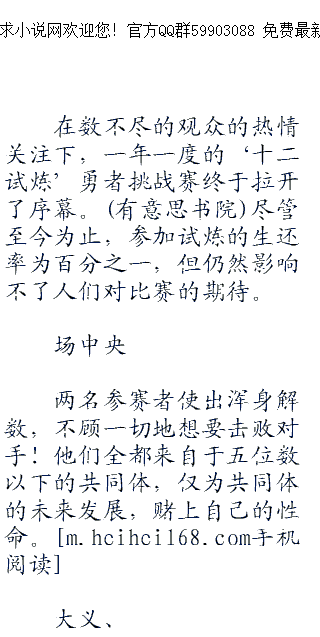 求小说网欢迎您！官方QQ群59903088 免费最新
在数不尽的观众的热情
关注下，一年一度的‘十二
试炼’勇者挑战赛终于拉开
了序幕。(有意思书院)尽管
至今为止，参加试炼的生还
率为百分之一，但仍然影响
不了人们对比赛的期待。
场中央
两名参赛者使出浑身解
数，不顾一切地想要击败对
手！他们全都来自于五位数
以下的共同体，仅为共同体
的未来发展，赌上自己的性
命。[m.hcihci168.com手机
阅读]
大义、